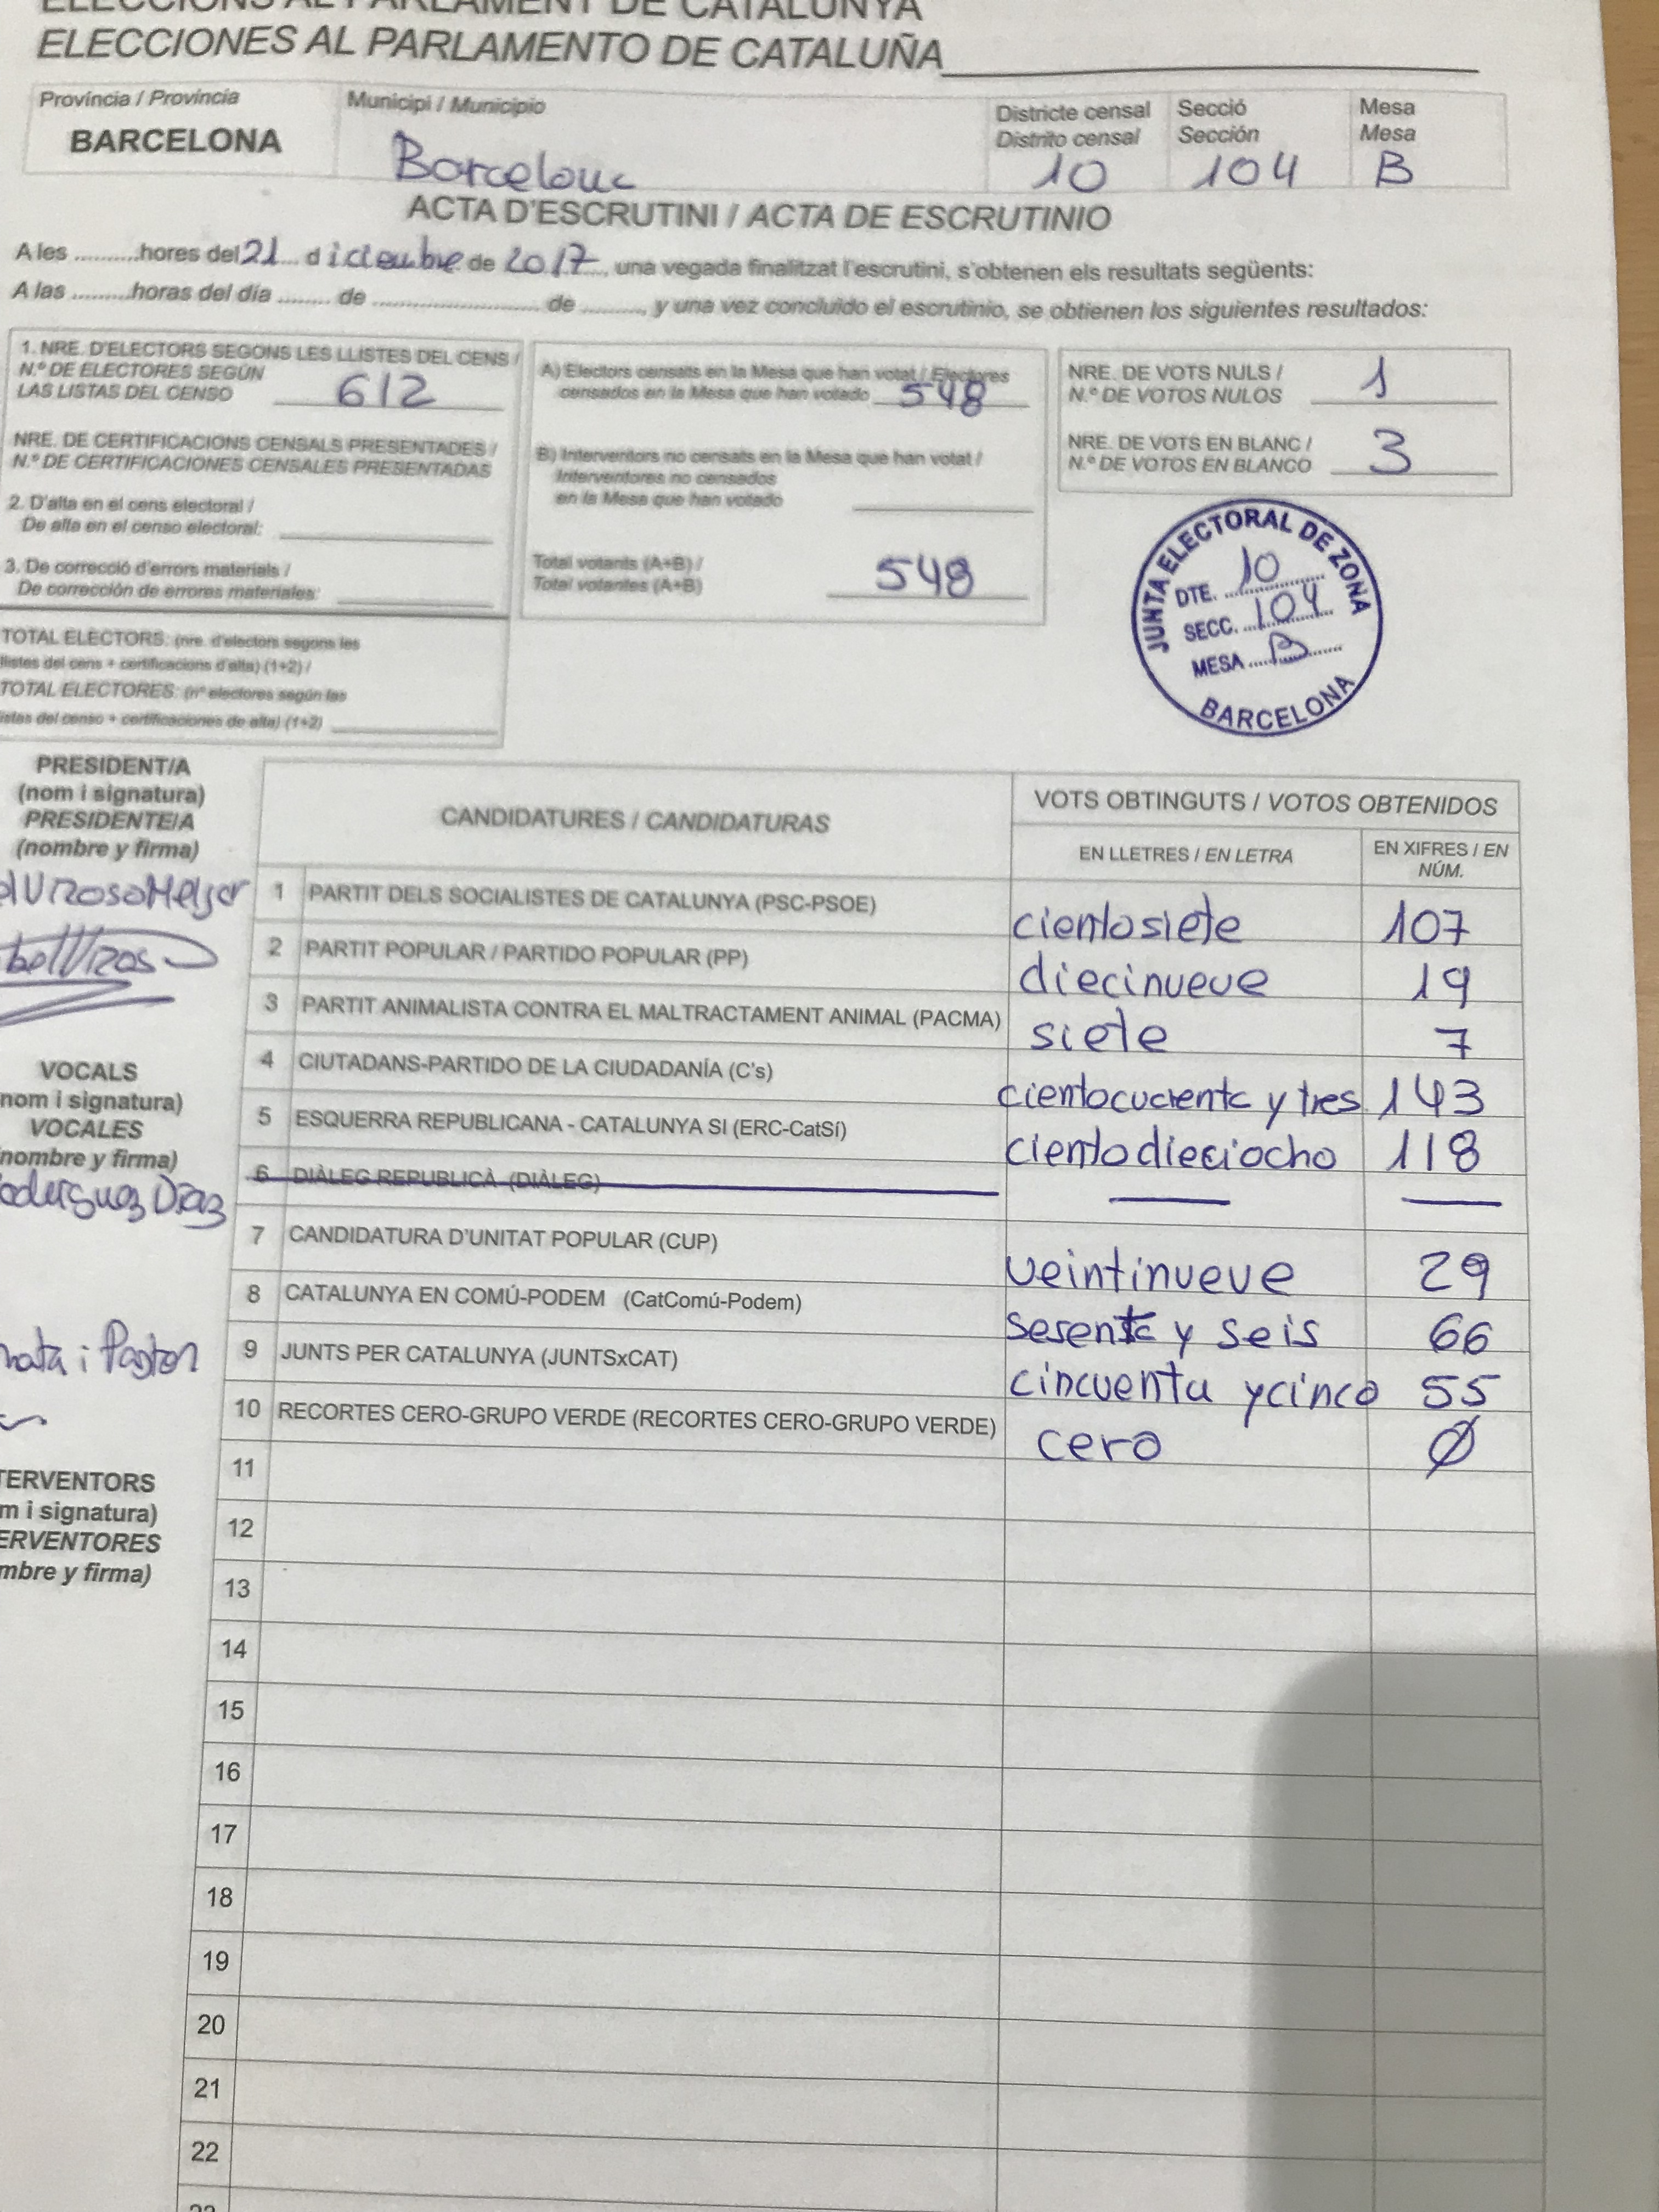 ELECCIONS AL PARLAMENT DE CATALUNYA
ELECCIONES AL PARLAMENTO DE CATALUÑA
Província / Provincia
BARCELONA
Municipi / Municipio
Barcelona
Districte censal
Distrito censal
10
Secció
Sección
104
Mesa
Mesa
B
ACTA D'ESCRUTINI / ACTA DE ESCRUTINIO
A les ..........hores del 21 d iciembre de 2017, una vegada finalitzat l'escrutini, s'obtenen els resultats següents:
A las .........horas del día ........ de .......................... de .........., y una vez concluido el escrutinio, se obtienen los siguientes resultados:
1. NRE. D'ELECTORS SEGONS LES LLISTES DEL CENS /
N.º DE ELECTORES SEGÚN
LAS LISTAS DEL CENSO 612
NRE. DE CERTIFICACIONS CENSALS PRESENTADES /
N.º DE CERTIFICACIONES CENSALES PRESENTADAS
2. D'alta en el cens electoral /
De alta en el censo electoral:
3. De correcció d'errors materials /
De corrección de errores materiales:
TOTAL ELECTORS: (nre. d'electors segons les
llistes del cens + certificacions d'alta) (1+2) /
TOTAL ELECTORES: (nº electores según las
listas del censo + certificaciones de alta) (1+2)
A) Electors censats en la Mesa que han votat / Electores
censados en la Mesa que han votado 548
B) Interventors no censats en la Mesa que han votat /
Interventores no censados
en la Mesa que han votado
Total votants (A+B) /
Total votantes (A+B) 548
NRE. DE VOTS NULS /
N.º DE VOTOS NULOS 1
NRE. DE VOTS EN BLANC /
N.º DE VOTOS EN BLANCO 3
JUNTA ELECTORAL DE ZONA
DTE. 10
SECC. 104
MESA B
BARCELONA
PRESIDENT/A
(nom i signatura)
PRESIDENTE/A
(nombre y firma)
VOCALS
nom i signatura)
VOCALES
nombre y firma)
Díaz
i Pastor
TERVENTORS
m i signatura)
ERVENTORES
mbre y firma)
CANDIDATURES / CANDIDATURAS
VOTS OBTINGUTS / VOTOS OBTENIDOS
EN LLETRES / EN LETRA
EN XIFRES / EN NÚM.
1 PARTIT DELS SOCIALISTES DE CATALUNYA (PSC-PSOE) ciento siete 107
2 PARTIT POPULAR / PARTIDO POPULAR (PP) diecinueve 19
3 PARTIT ANIMALISTA CONTRA EL MALTRACTAMENT ANIMAL (PACMA) siete 7
4 CIUTADANS-PARTIDO DE LA CIUDADANÍA (C's) ciento cuarenta y tres 143
5 ESQUERRA REPUBLICANA - CATALUNYA SI (ERC-CatSí) ciento dieciocho 118
6 DIÀLEG REPUBLICÀ (DIÀLEG)
7 CANDIDATURA D'UNITAT POPULAR (CUP) veintinueve 29
8 CATALUNYA EN COMÚ-PODEM (CatComú-Podem) sesenta y seis 66
9 JUNTS PER CATALUNYA (JUNTSxCAT) cincuenta y cinco 55
10 RECORTES CERO-GRUPO VERDE (RECORTES CERO-GRUPO VERDE) cero Ø
11
12
13
14
15
16
17
18
19
20
21
22
23